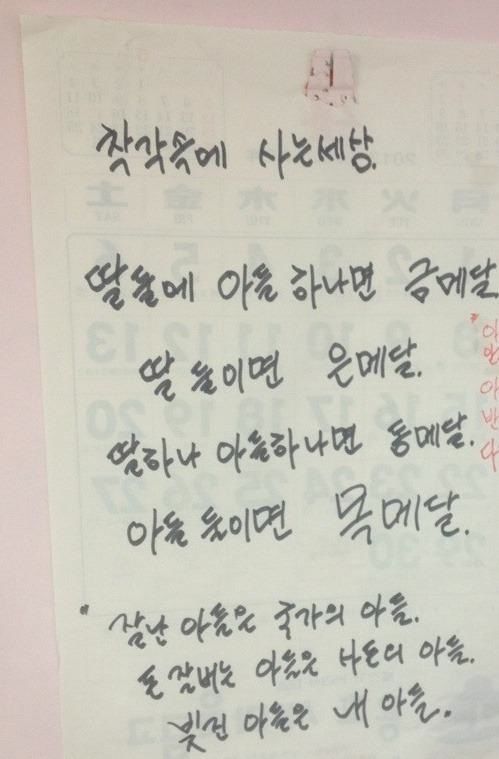 착각속에 사는세상.
딸둘에 아들 하나면 금메달
딸 둘이면 은메달.
딸하나 아들하나면 동메달.
아들 둘이면 목메달.
" 잘난 아들은 국가의 아들.
돈 잘버는 아들은 사돈의 아들.
빚진 아들은 내 아들.